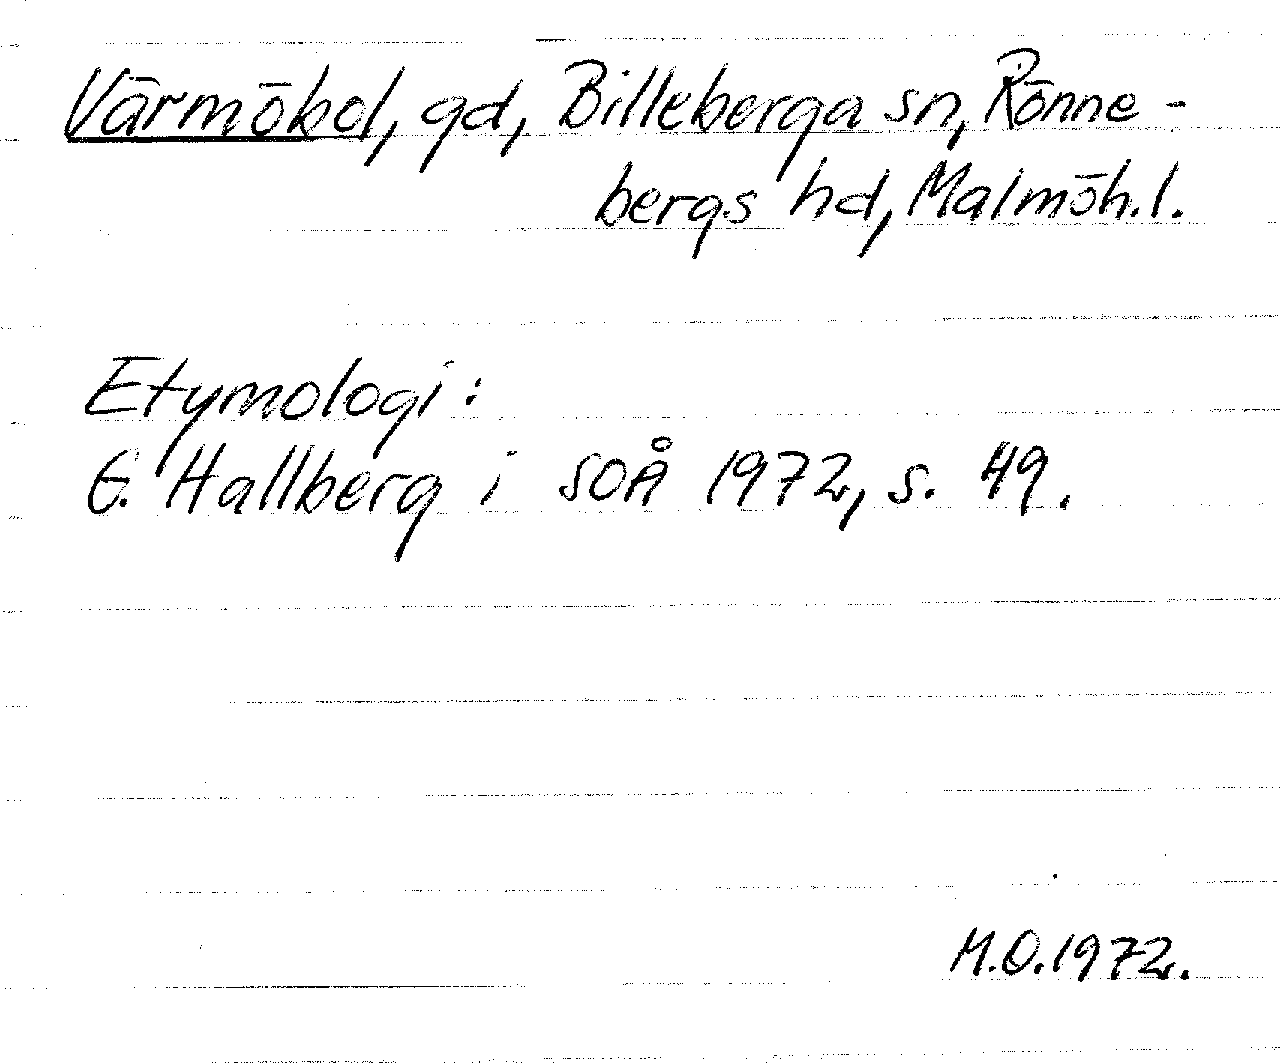 Värmöbol, gd, Billeberga sn, Rönne-
bergs hd, Malmöh.l.
Etymologi:
G. Hallberg i SOÅ 1972, s. 49.
M.O.1972.